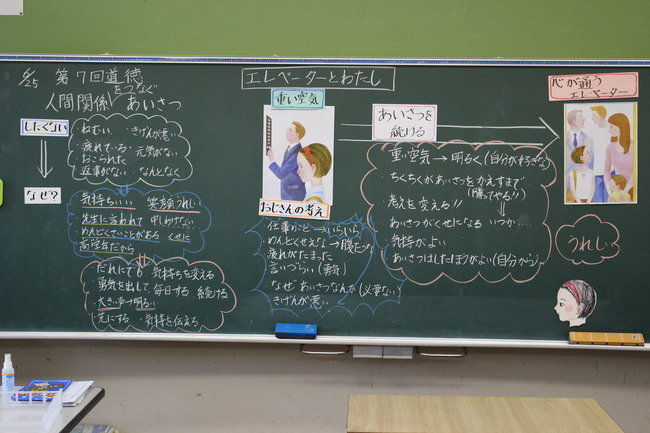 6/25
第7回道徳
人間関係をつなぐあいさつ
したくない
・ねむい ・きげんが悪い
・疲れている・元気がない
・おこられた
・返事がない ・なんとなく
なぜ?
気持ちいい 笑顔うれしい
・先生に言われて 申しわけない
・めんどくさいことがある くせに
高学年だから
・だれにでも 気持ちを変える
・勇気を出して、毎日する 続ける
・大きい声 明るい
・元にする ・気持を伝える
エレベーターとわたし
重い空気
おじさんの考え
仕事
いらいら
・めんどくせえな→腹たつな
疲れがたまった
言いづらい(勇気)
・なぜあいさつなんか(必要ない)
きげんが悪い
あいさつを
続ける
・重い空気→明るく(自分が好きな)
・ちくちくがあいさつをかえすまで
(勝ってやる!!)
・考えを変える!!
・あいさつがくせになる いつか…
・気持がよい
・あいさつはしたほうがよい(自分から)
心が通う
エレベーター
うれしい